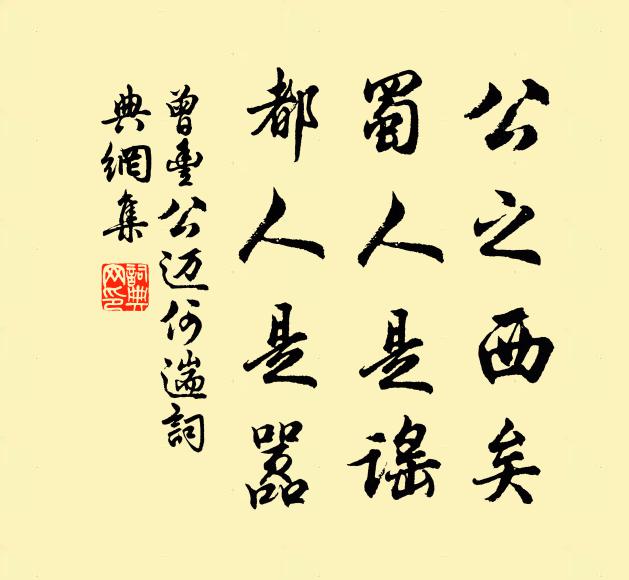 公之西矣
蜀人是謠
都人是嚣
曾豐公迈何遄詞
典網集
詞典
网印